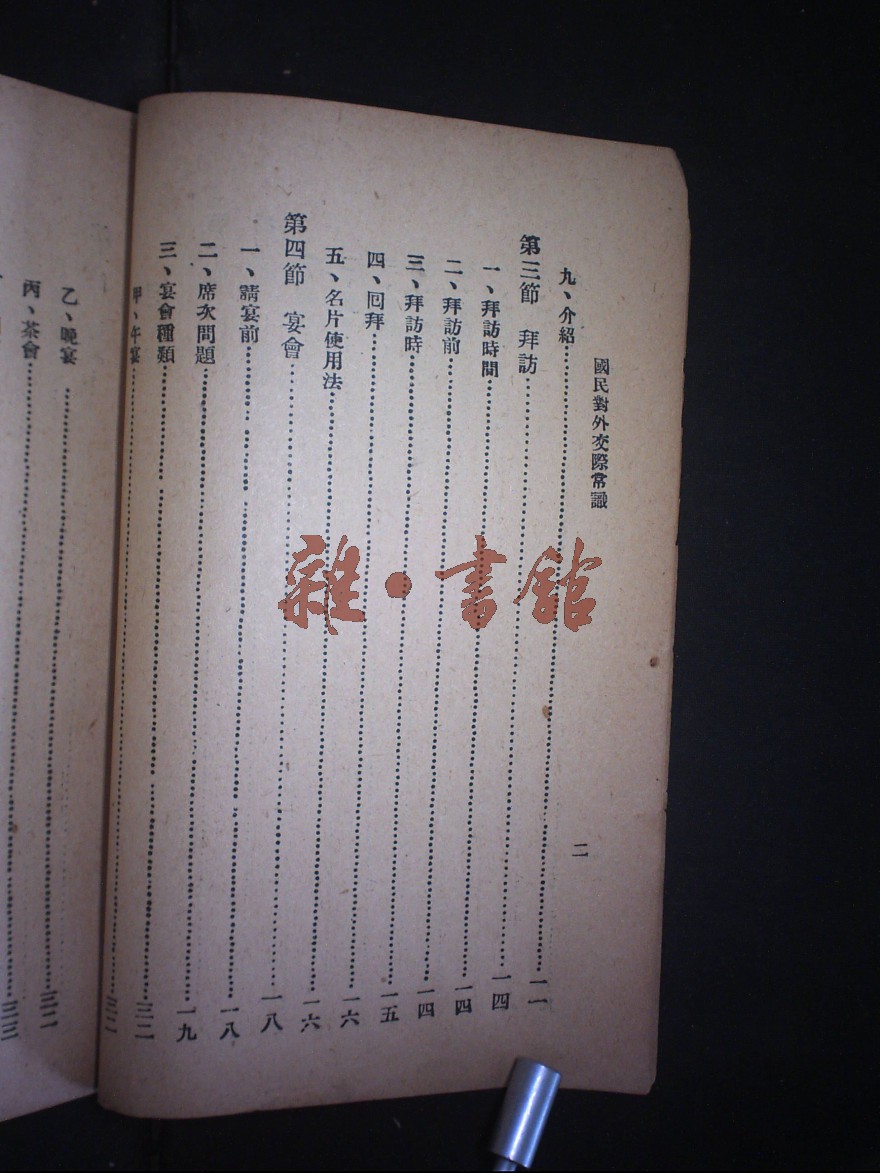 國民對外交際常識
二
九、介紹
第三節 拜訪 一四
一、拜訪時間 一四
二、拜訪前 一四
三、拜訪時 一五
四、回拜 一六
五、名片使用法 一六
第四節 宴會 一八
一、請宴前 一八
二、席次問題 一九
三、宴會種類 三二
甲、午宴 三二
乙、晚宴 三二
丙、茶會 三三
雜·書館